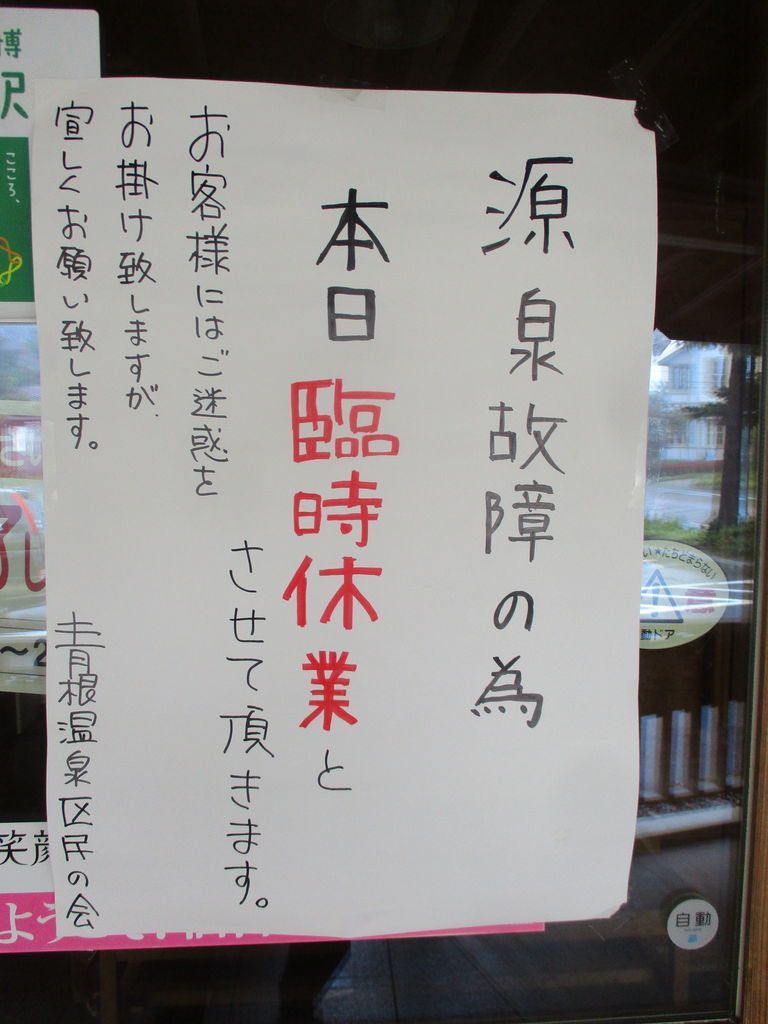 源泉故障の為
本日臨時休業と
させて頂きます。
お客様にはご迷惑を
お掛け致しますが、
宜しくお願い致します。
青根温泉区民の会
こころ、
笑顔
動ドア
自動